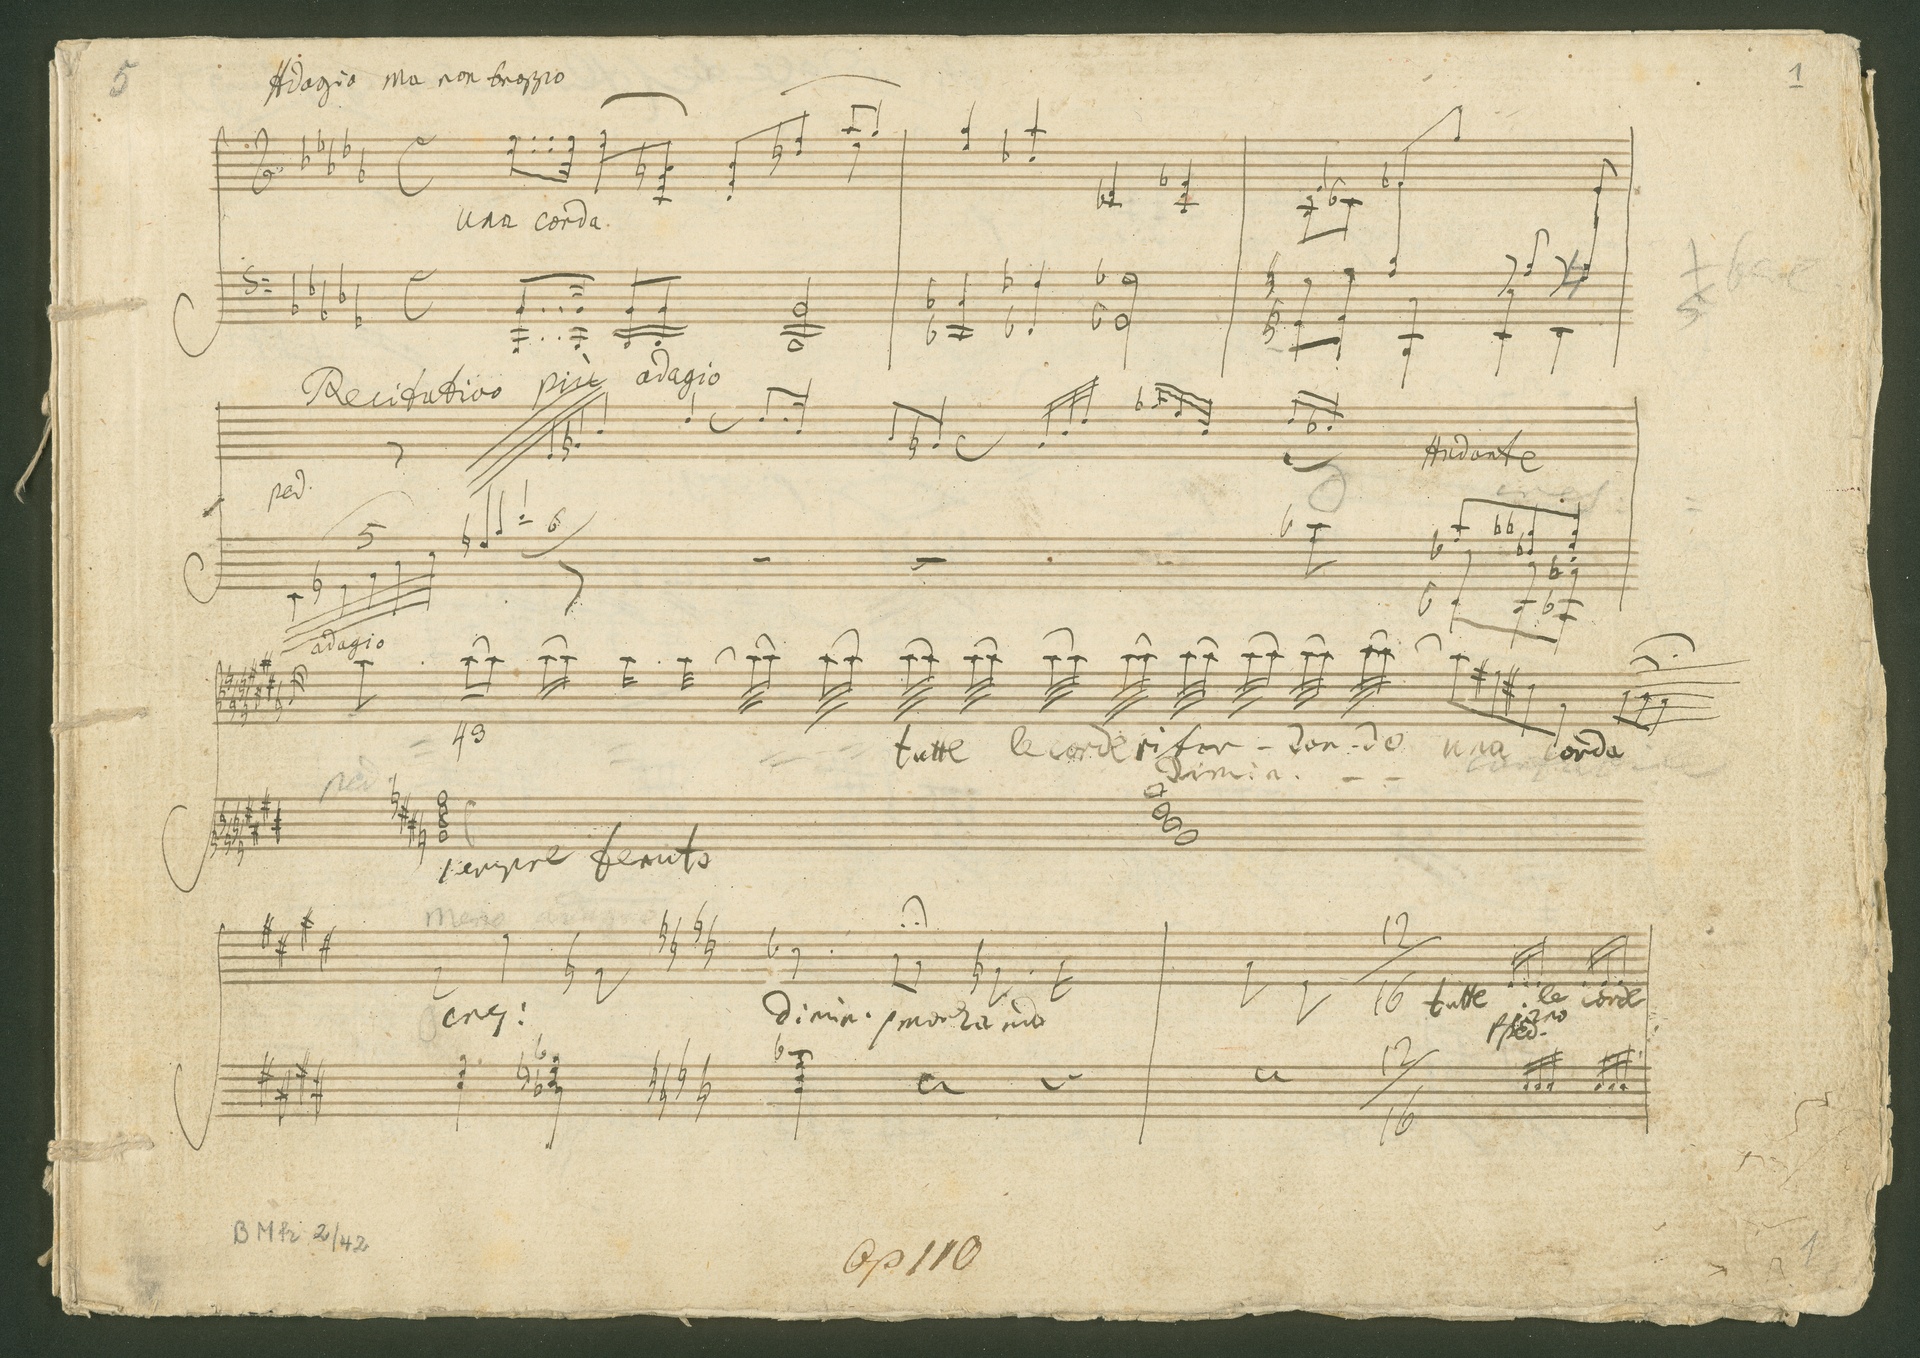 5
1
Adagio ma non troppo
una corda.
Recitativo più adagio
Andante
ped.
5
6
adagio
43
tutte le corde rifor - zan - do una corda
dimin. - -
ped
sempre tenuto
meno adagio
cresc:
dimin. smorzando
12
16
tutte le corde
piano
ped.
12
16
BMh 2/42
Op 110
1